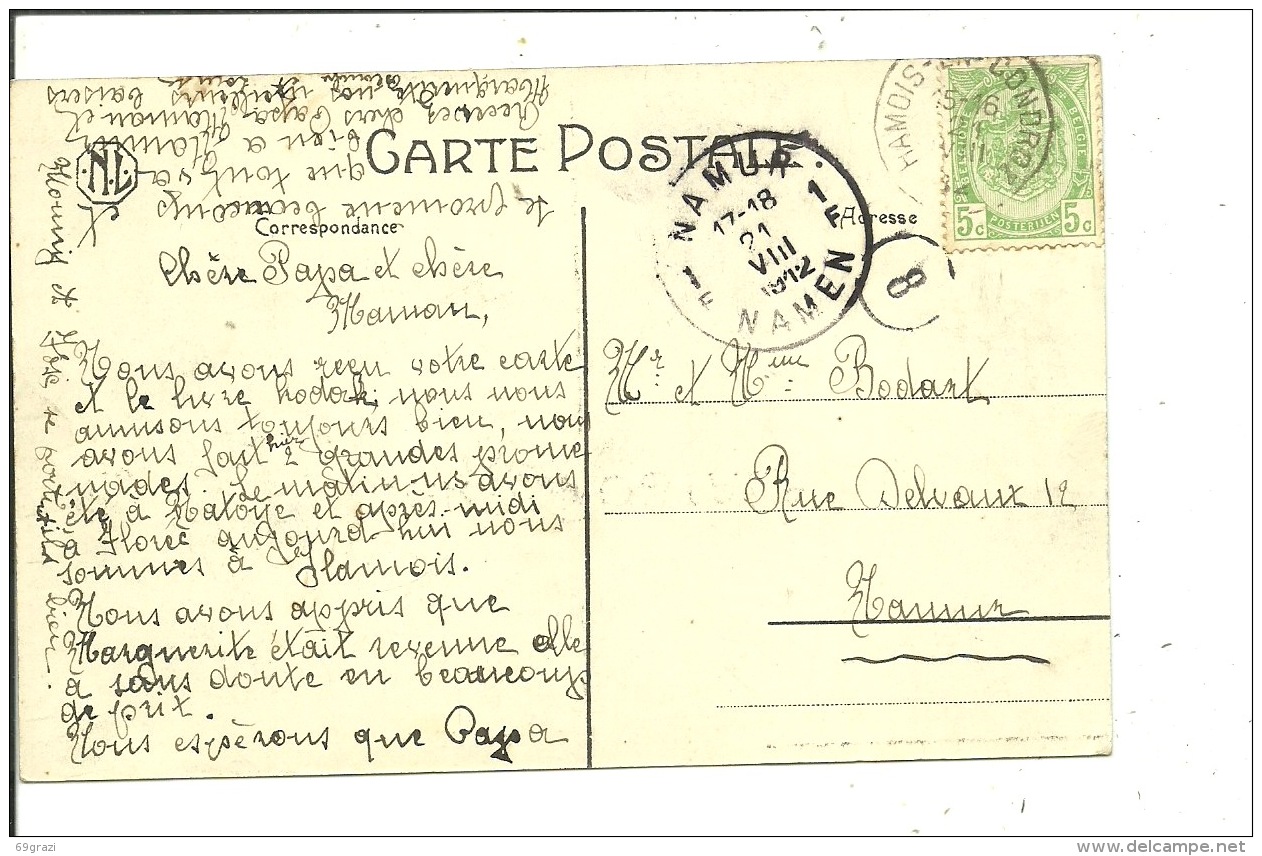 CARTE POSTALE.
Correspondance
Adresse
N.L.
HAMOIS-EN-CONDROZ
15-16
NAMUR 1
17-18
21
VIII
1912
NAMEN
1F
1F
8
BELGIQUE BELGIE
POSTERIJEN
5c 5c
Chère Papa et chère
Maman,
Nous avons reçu votre carte
et le livre kodak, nous nous
amusons toujours bien, nous
avons fait hier 2 grandes prome
nades. Le matin nous avons
été à Natoye et après-midi
à Florée aujourd hui nous
sommes à Hamois.
Nous avons appris que
Marguerite était revenue elle
a sans doute eu beaucoup
de prix.
Nous espèrons que Papa
se promene beaucoup
et que tout va
bien a Namur
Recevez chers Papa, Maman et
Marguerite nos meilleurs baisers
Mr et Mme Bodart
Rue Delvaux 12
Namur
69grazi
www.delcampe.net